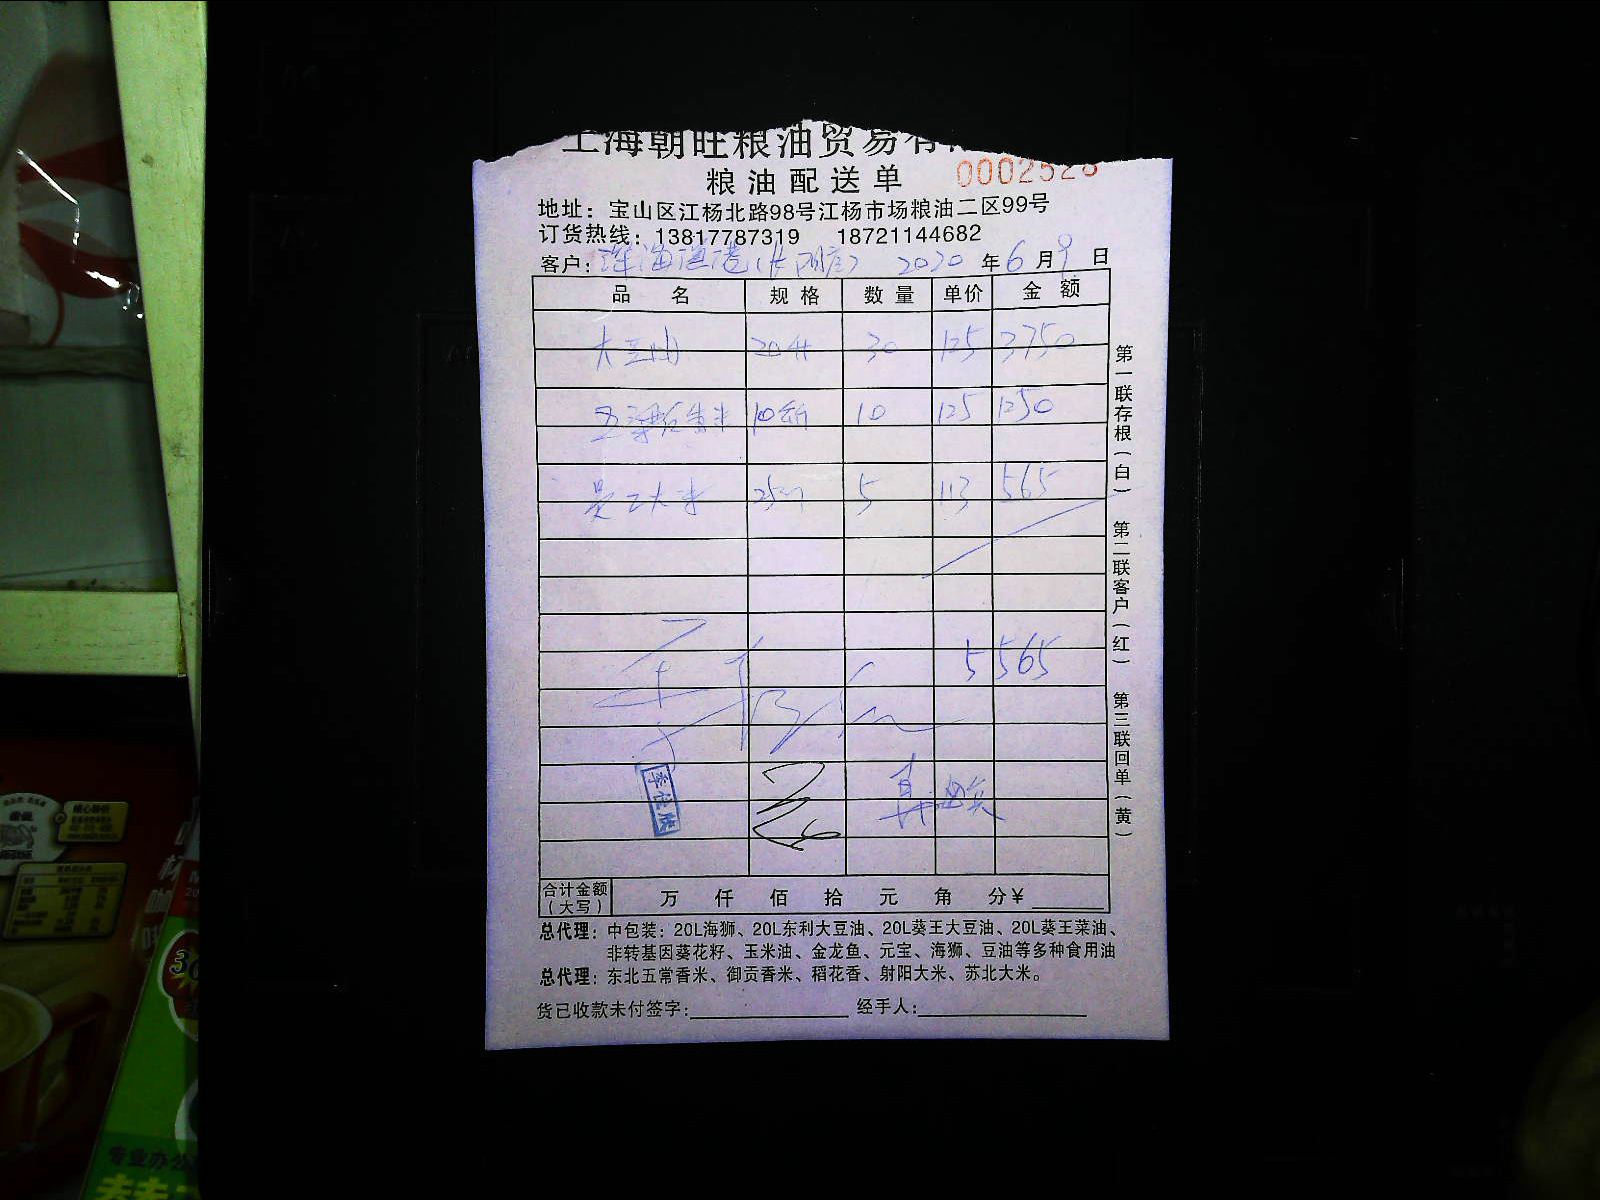 上海朝旺粮油贸易有
粮油配送单 0002528
地址：宝山区江杨北路98号江杨市场粮油二区99号
订货热线：13817787319 18721144682
客户： 2020 年 6 月 9 日
品 名 规 格 数 量 单价 金 额
大豆油 20升 30 125 3750
10 125 1250
大米 5 113 565
5565
李佳欣
合计金额（大写） 万 仟 佰 拾 元 角 分¥
总代理：中包装：20L海狮、20L东利大豆油、20L葵王大豆油、20L葵王菜油、
非转基因葵花籽、玉米油、金龙鱼、元宝、海狮、豆油等多种食用油
总代理：东北五常香米、御贡香米、稻花香、射阳大米、苏北大米。
货已收款未付签字： 经手人：
第一联存根（白） 第二联客户（红） 第三联回单（黄）
专业办公